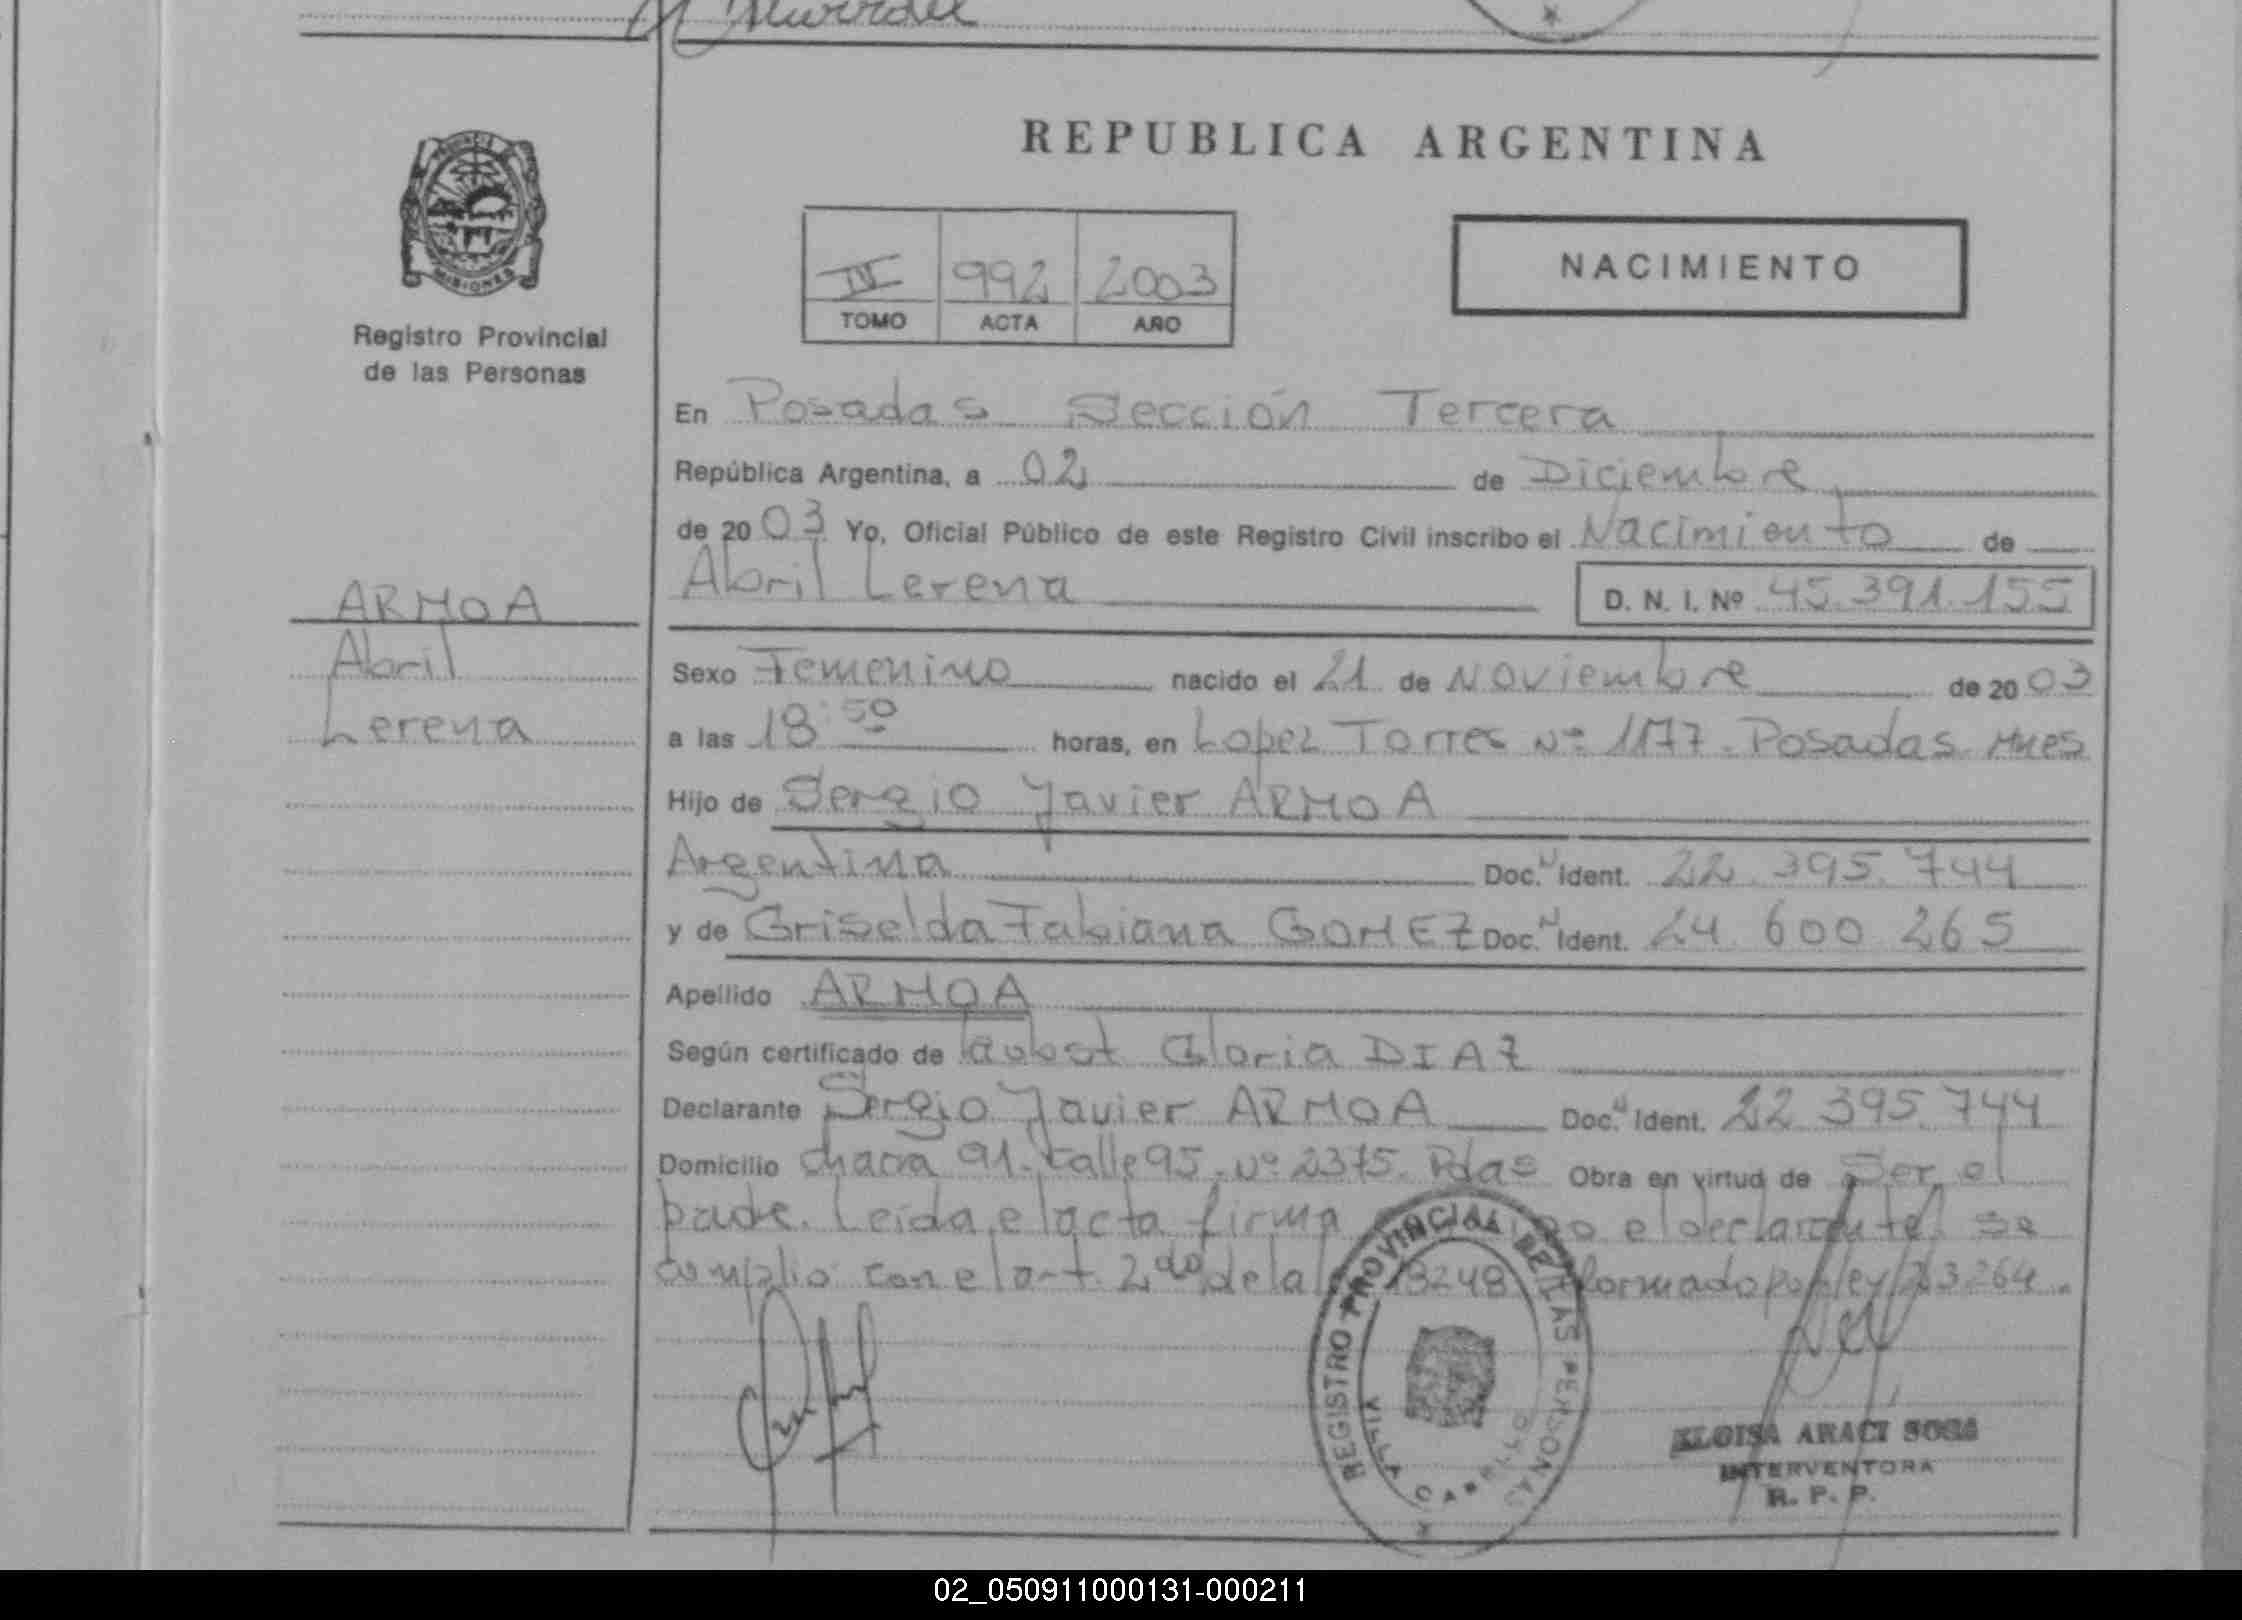 REPUBLICA ARGENTINA
MISIONES
Registro Provincial
de las Personas
IV 992 2003
TOMO ACTA AÑO
NACIMIENTO
En Posadas Sección Tercera
República Argentina, a 02 de Diciembre
de 2003 Yo, Oficial Público de este Registro Civil inscribo el Nacimiento de
Abril Lerena D. N. I. Nº 45.391.155
ARMOA
Abril
Lerena
Sexo Femenino nacido el 21 de Noviembre de 2003
a las 18:50 horas, en Lopez Torres Nº 1177. Posadas. Mnes
Hijo de Sergio Javier ARMOA
Argentina Doc. Ident. 22.395.744
y de Griselda Fabiana GOMEZ Doc. Ident. 24 600 265
Apellido ARMOA
Según certificado de Gloria DIAZ
Declarante Sergio Javier ARMOA Doc. Ident. 22 395.744
Domicilio chacra 91. calle 95. Nº 2375. Pdas Obra en virtud de Ser el
padre. Leída el acta firma el declarante. Se
cumplió con el art. 2do de la 18248 formado por ley 23264.
REGISTRO PROVINCIAL DE LAS PERSONAS
VILLA CABELLO
ELOISA ARACI SOSA
INTERVENTORA
R. P. P.
02_050911000131-000211